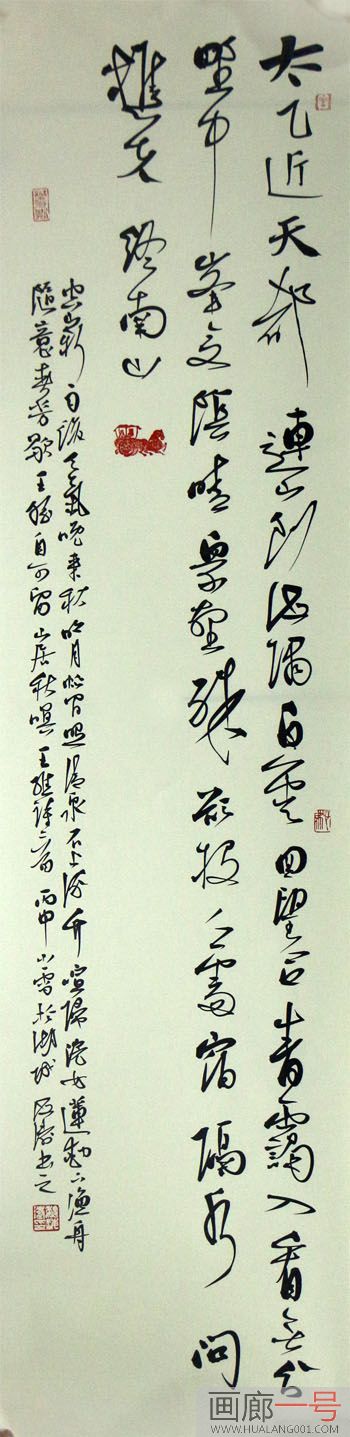 太乙近天都連山到海隅白雲回望合青靄入看無分
野中峯变陰晴衆壑殊欲投人處宿隔水問
樵夫 终南山
空山新雨後天氣晚來秋明月松間照清泉石上流竹喧歸浣女蓮動下漁舟
隨意春芳歇王孫自可留山居秋暝王維詩二首丙申小雪於湖城書之
画廊一号
WWW.HUALANG001.COM